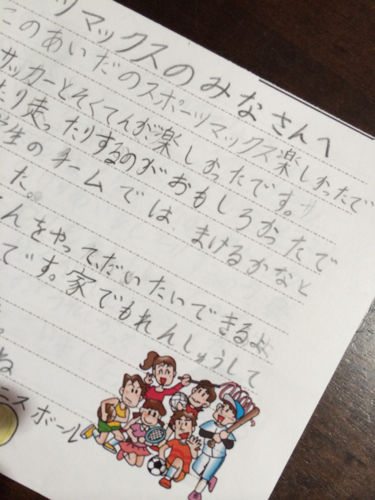 ツマックスのみなさんへ
このあいだのスポーツマックス楽しかったで
サッカーとそくてんが楽しかったです。
たり走ったりするのがおもしろかったで
学生のチームでは、まけるかなと
た。
てんをやって、だいたいできるよ
てです。家でもれんしゅうして
。
ね
ニスボール